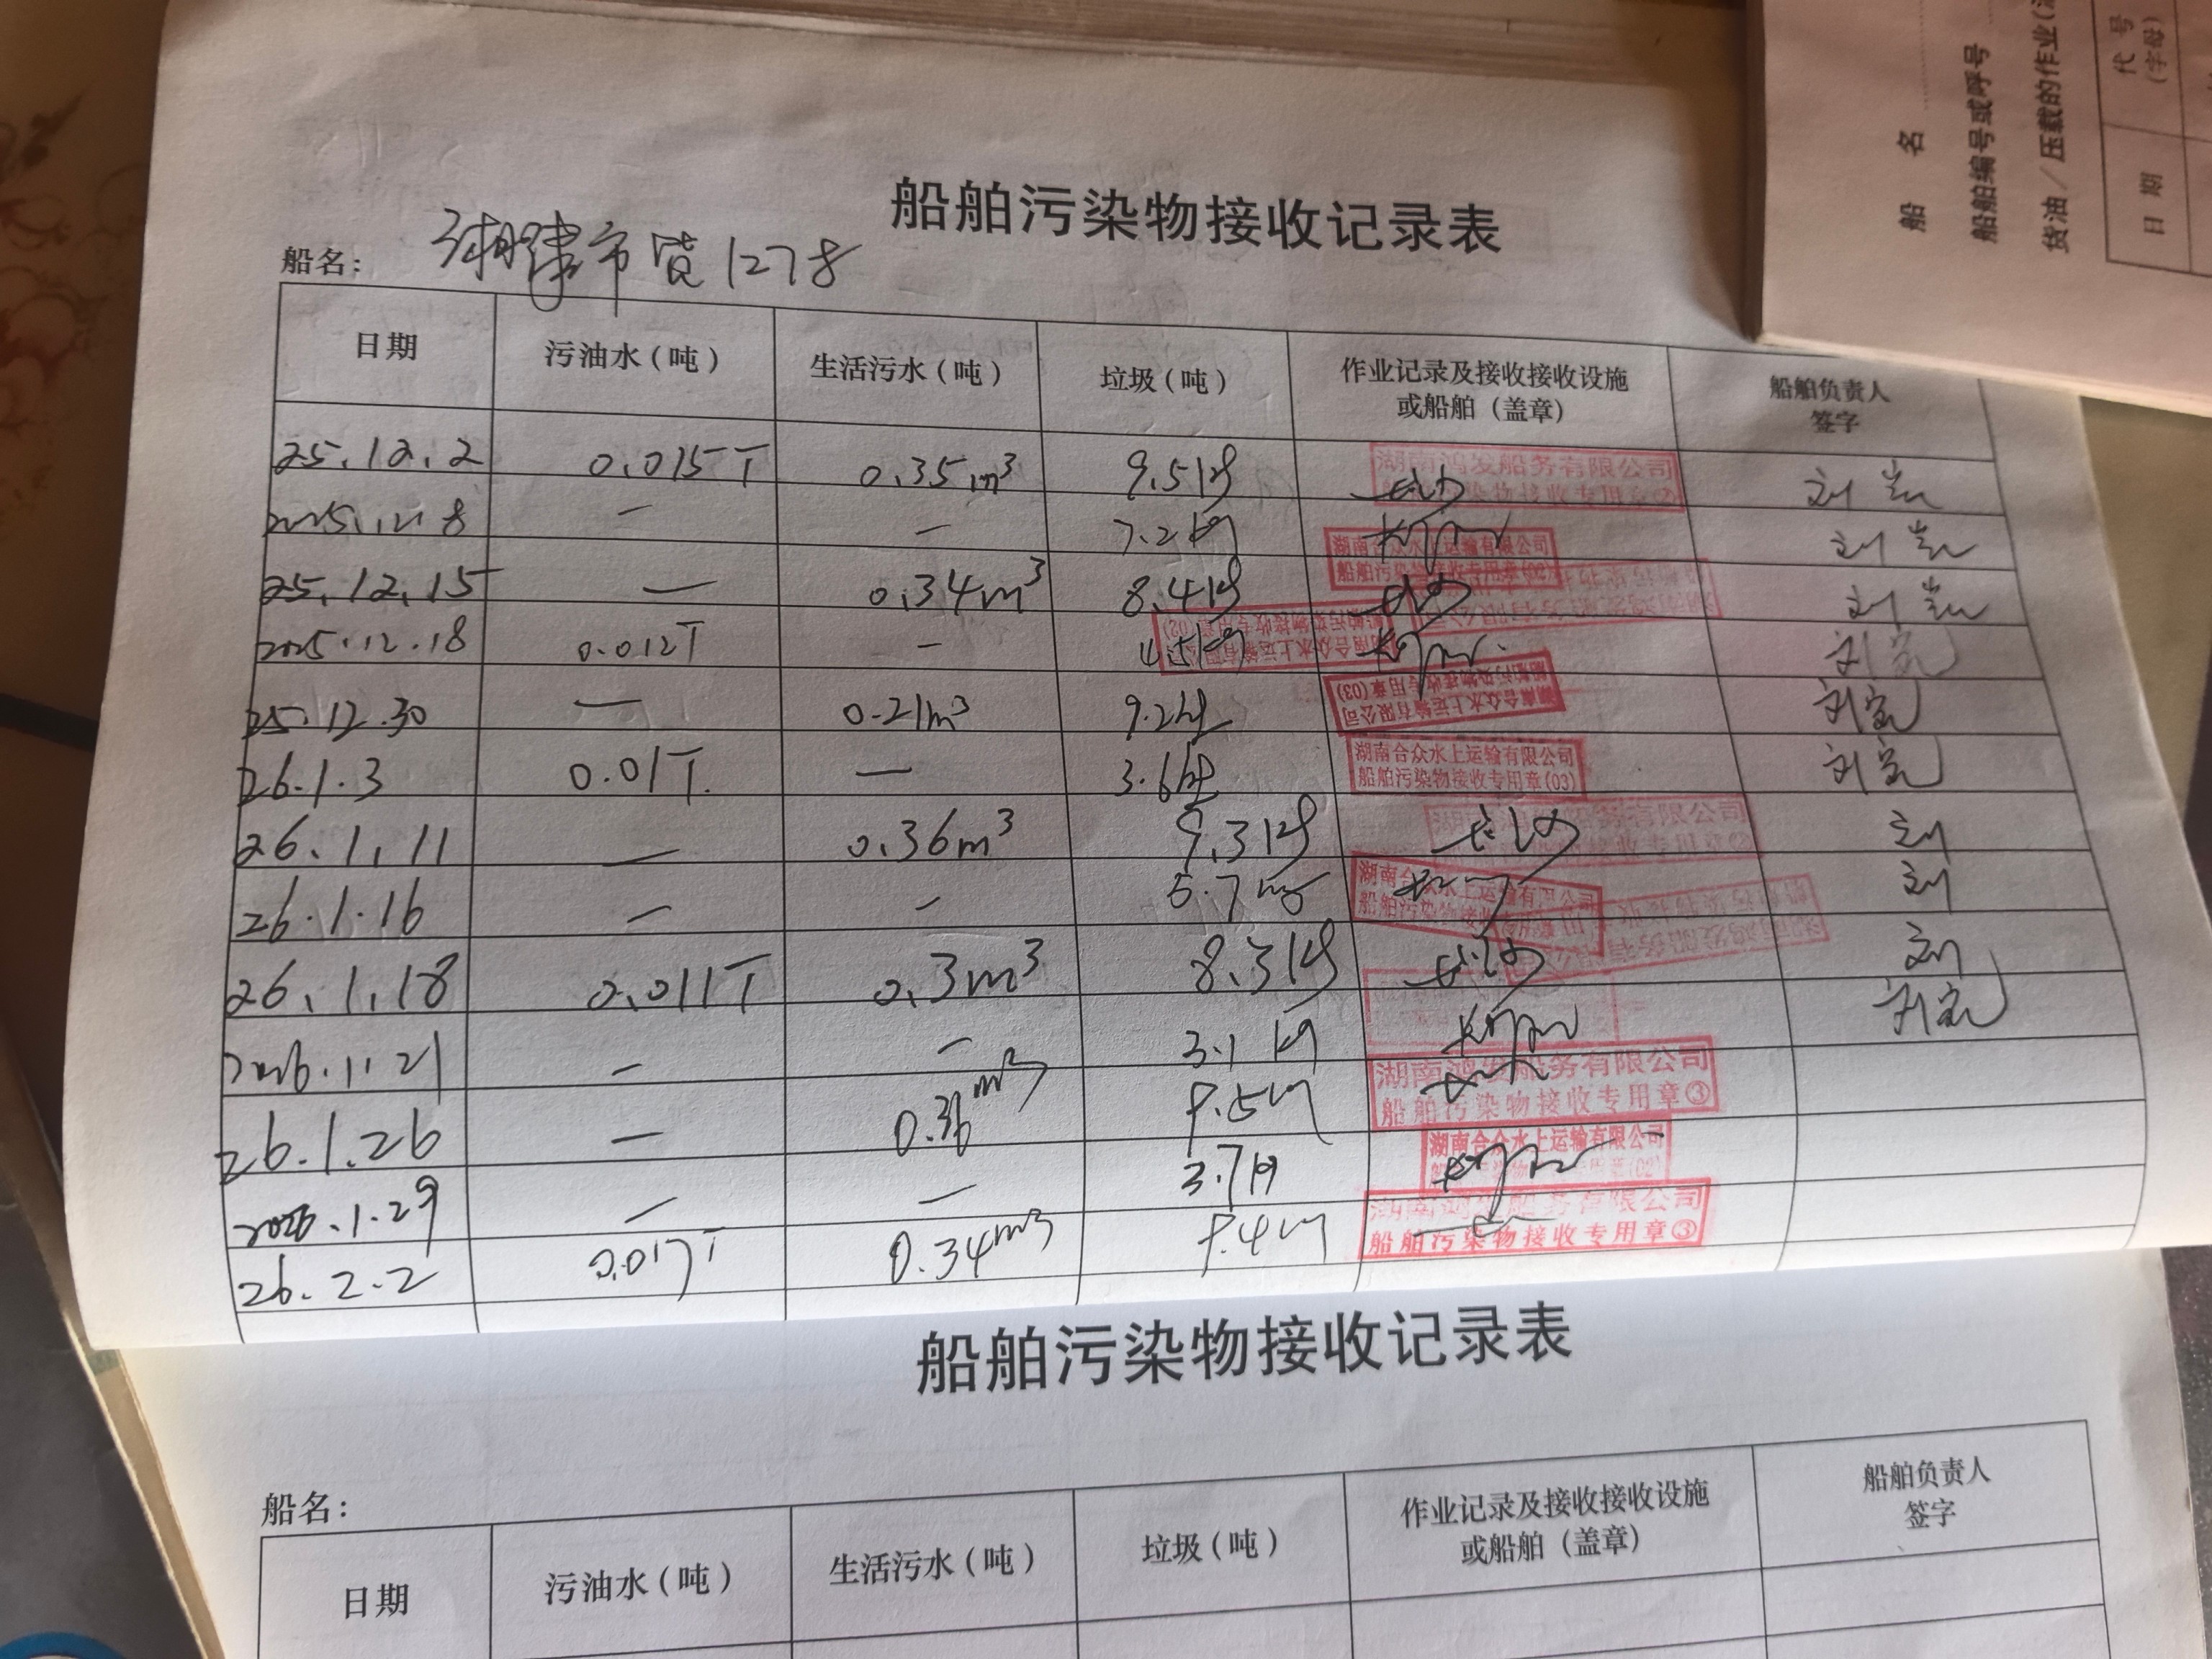 船舶污染物接收记录表
船名: 湘津市货1278
日期 污油水（吨） 生活污水（吨） 垃圾（吨） 作业记录及接收接收设施或船舶（盖章） 船舶负责人签字
25.12.2 0.015T 0.35m³ 9.5kg 湖南鸿发船务有限公司 船舶污染物接收专用章②
2025.12.8 — — 7.2kg 湖南合众水上运输有限公司 船舶污染物接收专用章(02)
25.12.15 — 0.34m³ 8.4kg
2025.12.18 0.012T — 4.5kg 湖南合众水上运输有限公司 船舶污染物接收专用章(02) 刘
25.12.30 — 0.21m³ 9.2kg 湖南合众水上运输有限公司 船舶污染物接收专用章(03) 刘
26.1.3 0.01T. — 3.6kg 湖南合众水上运输有限公司 船舶污染物接收专用章(03) 刘
26.1.11 — 0.36m³ 9.3kg 刘
26.1.16 — — 5.7kg 湖南合众水上运输有限公司 刘
26.1.18 0.011T 0.3m³ 8.3kg 湖南鸿发船务有限公司 刘
2026.1.21 — — 3.1kg 刘
26.1.26 — 0.36m³ 9.5kg 湖南鸿发船务有限公司 船舶污染物接收专用章③
2026.1.29 — — 3.7kg 湖南合众水上运输有限公司
26.2.2 0.017T 0.34m³ 9.4kg 湖南鸿发船务有限公司 船舶污染物接收专用章③
船舶污染物接收记录表
船名:
日期 污油水（吨） 生活污水（吨） 垃圾（吨） 作业记录及接收接收设施或船舶（盖章） 船舶负责人签字
船 名
船舶编号或呼号
货油／压载的作业(
日 期 代 号(字母)